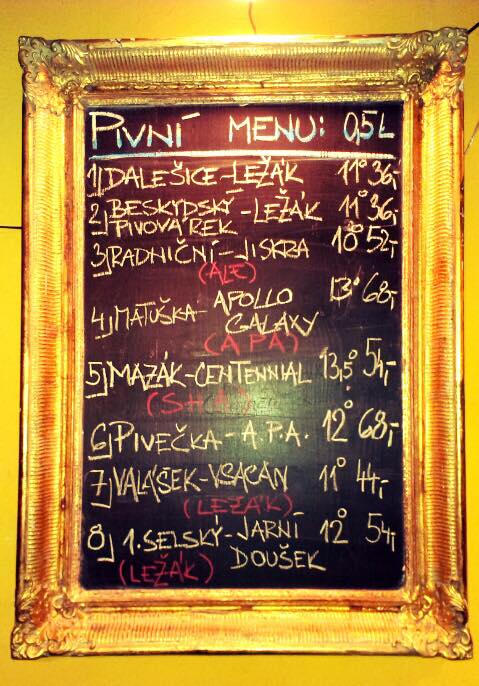 PIVNÍ MENU: 0,5L
1) DALEŠICE-LEŽÁK 11° 36,-
2) BESKYDSKÝ -LEŽÁK 11° 36,-
PIVOVÁREK
3) RADNIČNÍ-JISKRA 10° 52,-
(ALE)
4) MATUŠKA- APOLLO 13° 68,-
GALAXY
(APA)
5) MAZÁK-CENTENNIAL 13,5° 54,-
(SHA)
6) PIVEČKA-A.P.A. 12° 68,-
7) VALÁŠEK-VSACAN 11° 44,-
(LEŽÁK)
8) 1.SELSKÝ-JARNÍ 12° 54,-
DOUŠEK
(LEŽÁK)